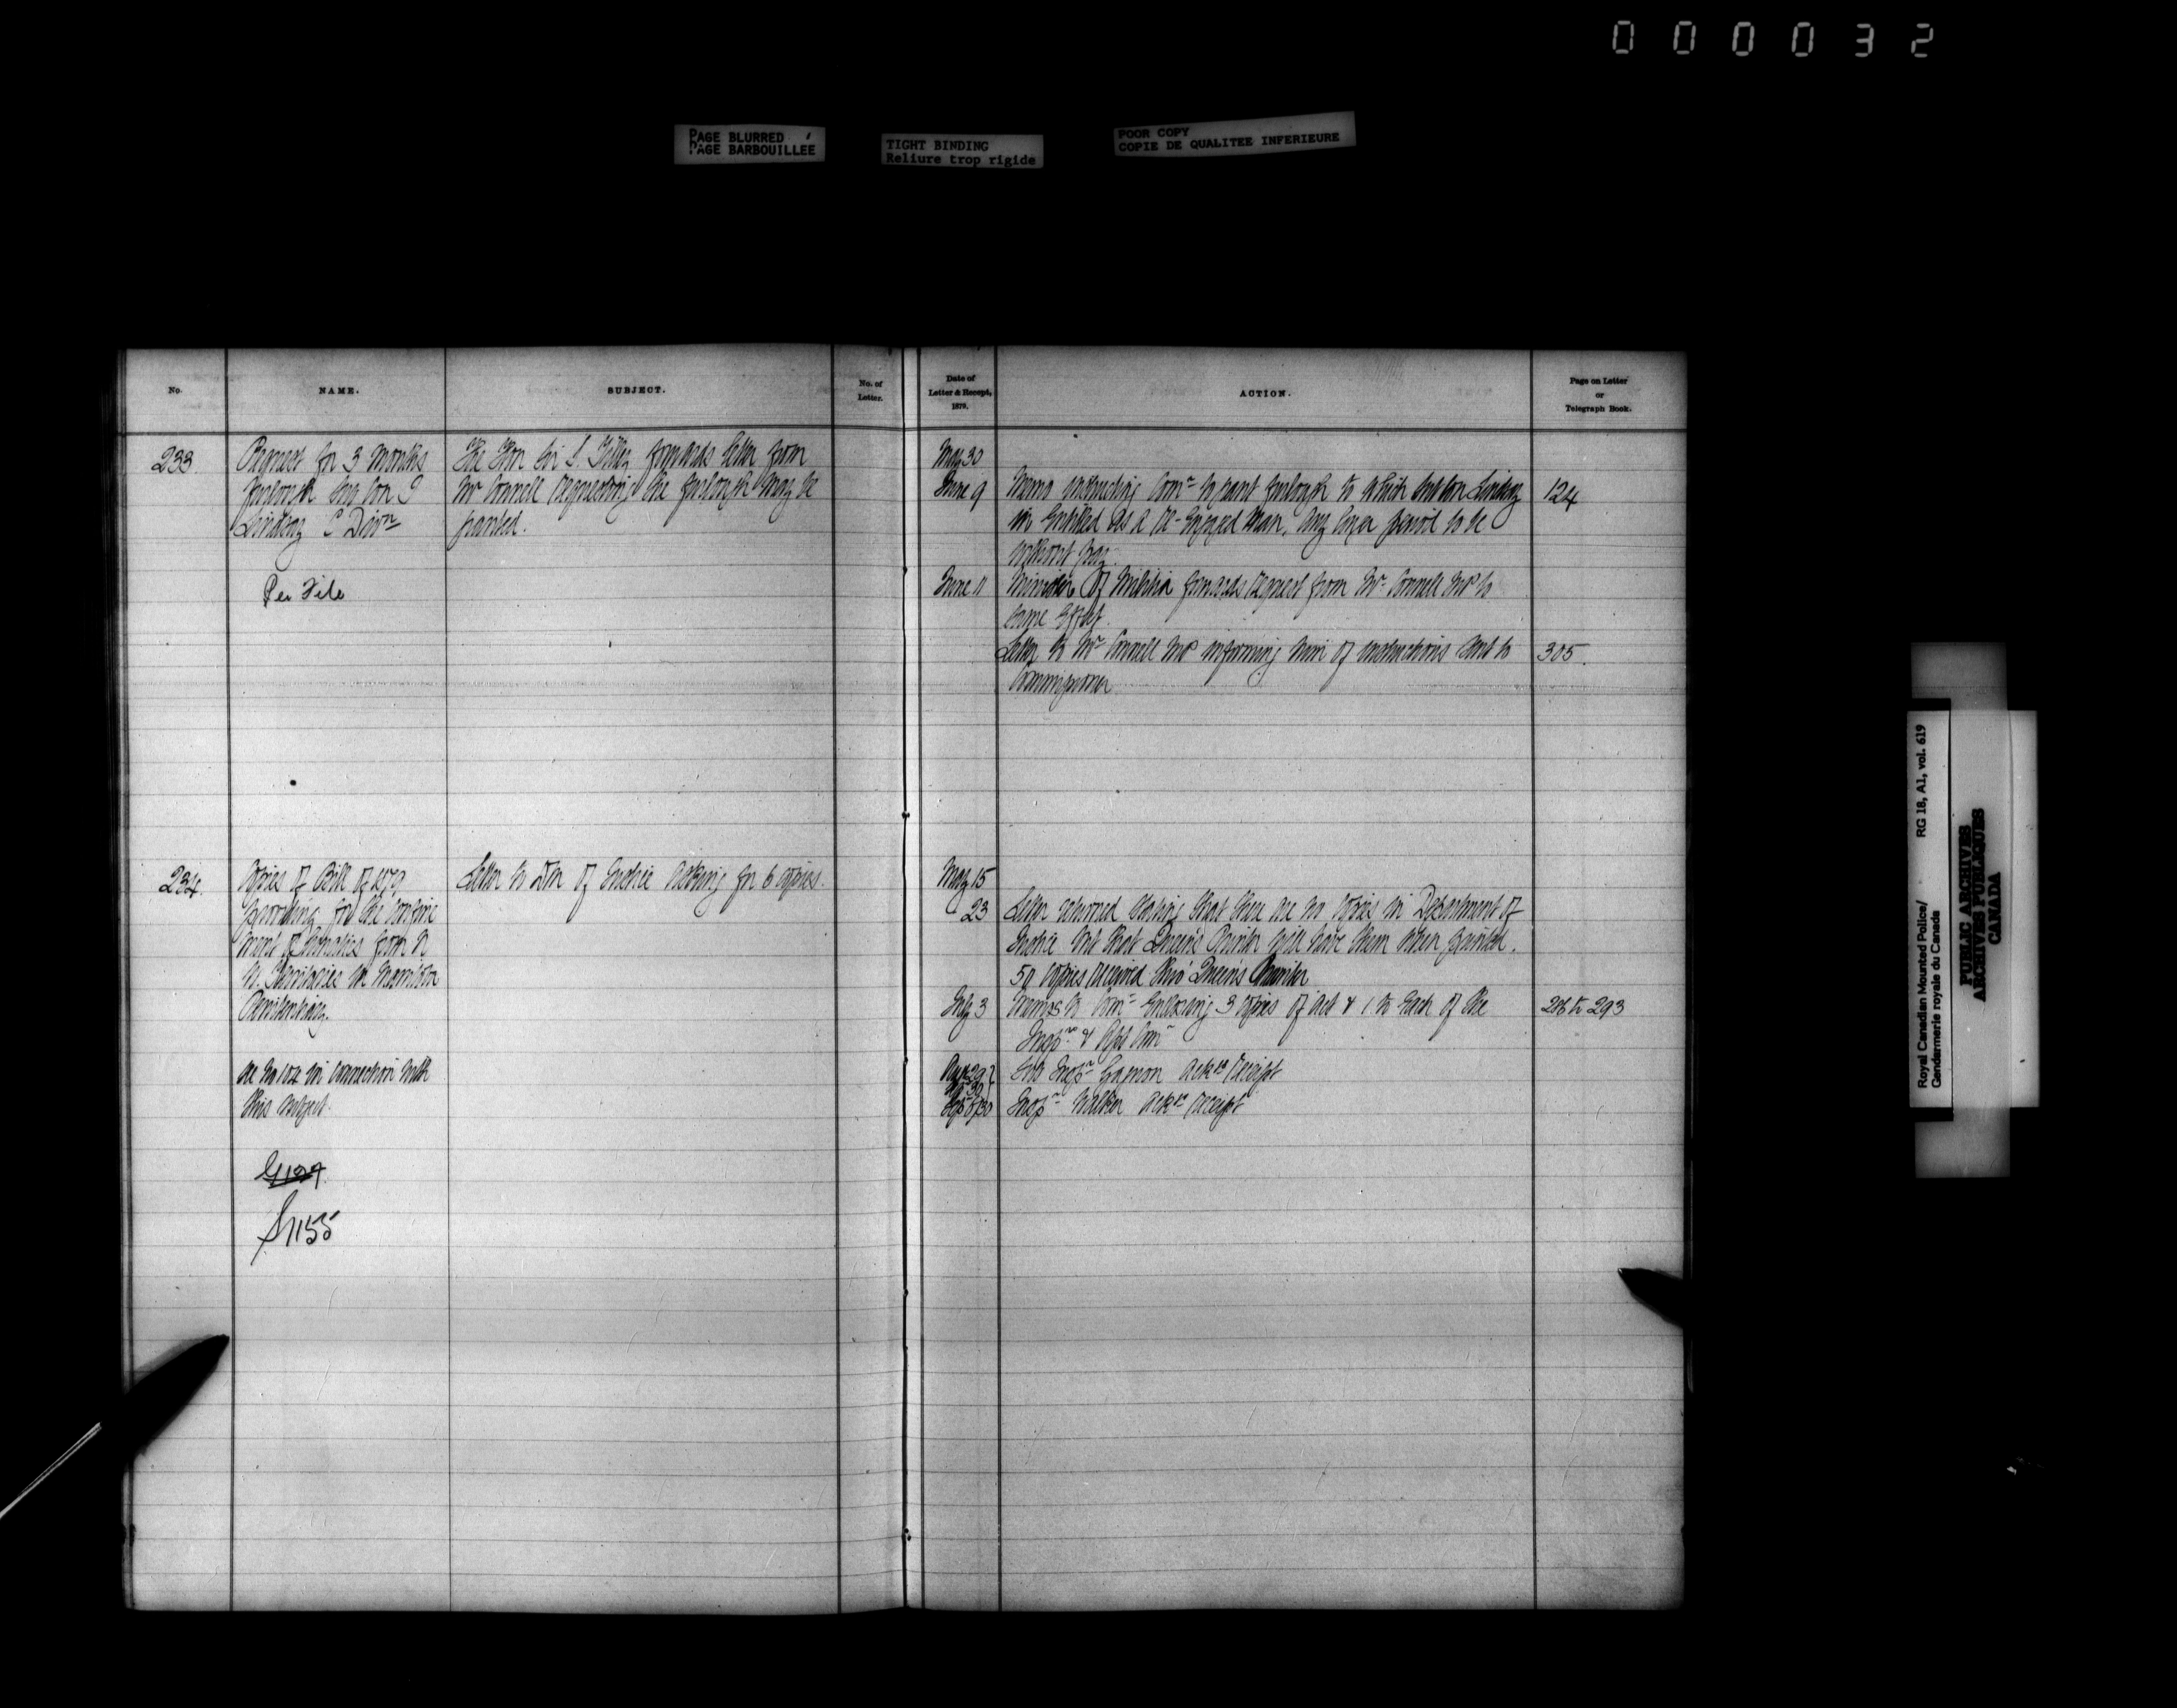 000032
PAGE BLURRED
PAGE BARBOUILLÉE
TIGHT BINDING
Reliure trop rigide
POOR COPY
COPIE DE QUALITEE INFERIEURE
No.
NAME.
SUBJECT.
No. of
Letter.
Date of
Letter & Receipt,
1879.
ACTION.
Page on Letter
or
Telegraph Book.
233.
Request for 3 months
furlough Con
Lindsay C Divn
Per File
The Hon Sir S. Tilley forwards letter from
Mr Connell requesting the furlough may be
granted.
May 30
June 9
Memo instructing Comr to grant furlough to which Lindsay
is entitled as a re-engaged man, any longer period to be
without pay.
124
June 11
Minister of Militia forwards request from Mr Connell MP to
same effect.
Letter to Mr Connell MP informing him of instructions sent to
Commissioner
305.
234.
Copies of Bill of 1879
providing for the confine
ment of Lunatics from N
W. Territories in Manitoba
Penitentiary.
See No 104 in connection with
this subject.
G1127
S1155
Letter to of Justice asking for 6 copies.
May 15
" 23
Letter returned stating that there are no copies in Department of
Justice but that Queen's Printer will have them when printed.
50 copies received thro' Queen's Printer
July 3
Memos to Comr enclosing 3 copies of Act & 1 to each of the
Insprs & Asst Comr
286 to 293
Inspr Gagnon ackes receipt
Inspr Walker ackes receipt
Royal Canadian Mounted Police/ RG 18, A1, vol. 619
Gendarmerie royale du Canada
PUBLIC ARCHIVES
ARCHIVES PUBLIQUES
CANADA